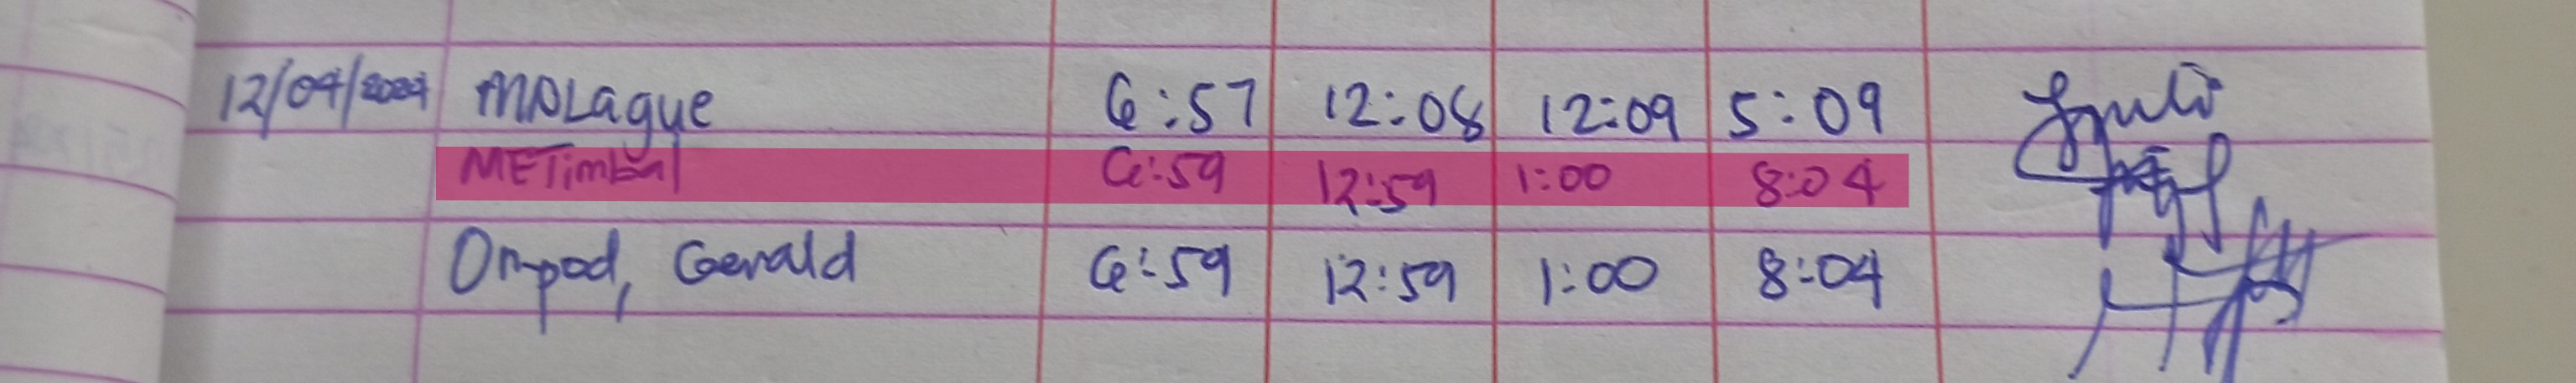 12/04/2024 MDLague 6:57 12:08 12:09 5:09
METimbal 6:59 12:59 1:00 8:04
Ompod, Gerald 6:59 12:59 1:00 8:04